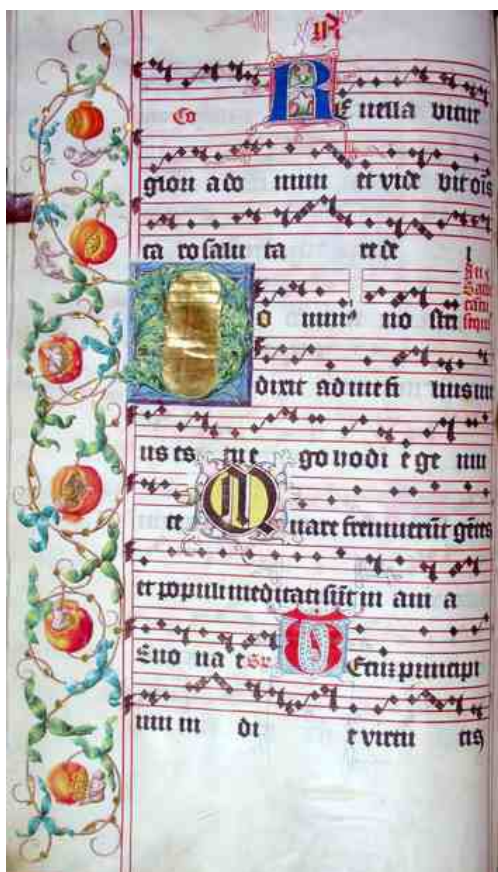 Co REuella bitur
glori a do mini et vide bit oīs
ca ro saluta re de
i
no stri
Domin
dixit ad me fi lius me
us es tu e go hodi e ge nui
te Quare fremuerūt gētes
et populi meditati sūt in ani a
Euo ua e Tecū principi
um in di e virtu tis